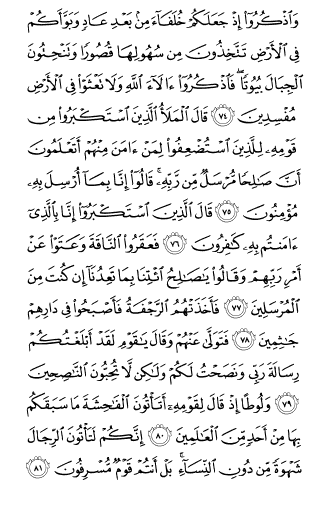 وَاذْكُرُوا إِذْ جَعَلَكُمْ خُلَفَاءَ مِنْ بَعْدِ عَادٍ وَبَوَّأَكُمْ
فِي الْأَرْضِ تَتَّخِذُونَ مِنْ سُهُولِهَا قُصُورًا وَتَنْحِتُونَ
الْجِبَالَ بُيُوتًا ۖ فَاذْكُرُوا ءَالَاءَ اللَّهِ وَلَا تَعْثَوْا فِي الْأَرْضِ
مُفْسِدِينَ ٧٤ قَالَ الْمَلَأُ الَّذِينَ اسْتَكْبَرُوا مِنْ
قَوْمِهِ لِلَّذِينَ اسْتُضْعِفُوا لِمَنْ ءَامَنَ مِنْهُمْ أَتَعْلَمُونَ
أَنَّ صَالِحًا مُرْسَلٌ مِنْ رَبِّهِ ۚ قَالُوا إِنَّا بِمَا أُرْسِلَ بِهِ
مُؤْمِنُونَ ٧٥ قَالَ الَّذِينَ اسْتَكْبَرُوا إِنَّا بِالَّذِي
ءَامَنْتُمْ بِهِ كَافِرُونَ ٧٦ فَعَقَرُوا النَّاقَةَ وَعَتَوْا عَنْ
أَمْرِ رَبِّهِمْ وَقَالُوا يَاصَالِحُ ائْتِنَا بِمَا تَعِدُنَا إِنْ كُنْتَ مِنَ
الْمُرْسَلِينَ ٧٧ فَأَخَذَتْهُمُ الرَّجْفَةُ فَأَصْبَحُوا فِي دَارِهِمْ
جَاثِمِينَ ٧٨ فَتَوَلَّى عَنْهُمْ وَقَالَ يَاقَوْمِ لَقَدْ أَبْلَغْتُكُمْ
رِسَالَةَ رَبِّي وَنَصَحْتُ لَكُمْ وَلَاكِنْ لَا تُحِبُّونَ النَّاصِحِينَ
٧٩ وَلُوطًا إِذْ قَالَ لِقَوْمِهِ أَتَأْتُونَ الْفَاحِشَةَ مَا سَبَقَكُمْ
بِهَا مِنْ أَحَدٍ مِنَ الْعَالَمِينَ ٨٠ إِنَّكُمْ لَتَأْتُونَ الرِّجَالَ
شَهْوَةً مِنْ دُونِ النِّسَاءِ ۚ بَلْ أَنْتُمْ قَوْمٌ مُسْرِفُونَ ٨١